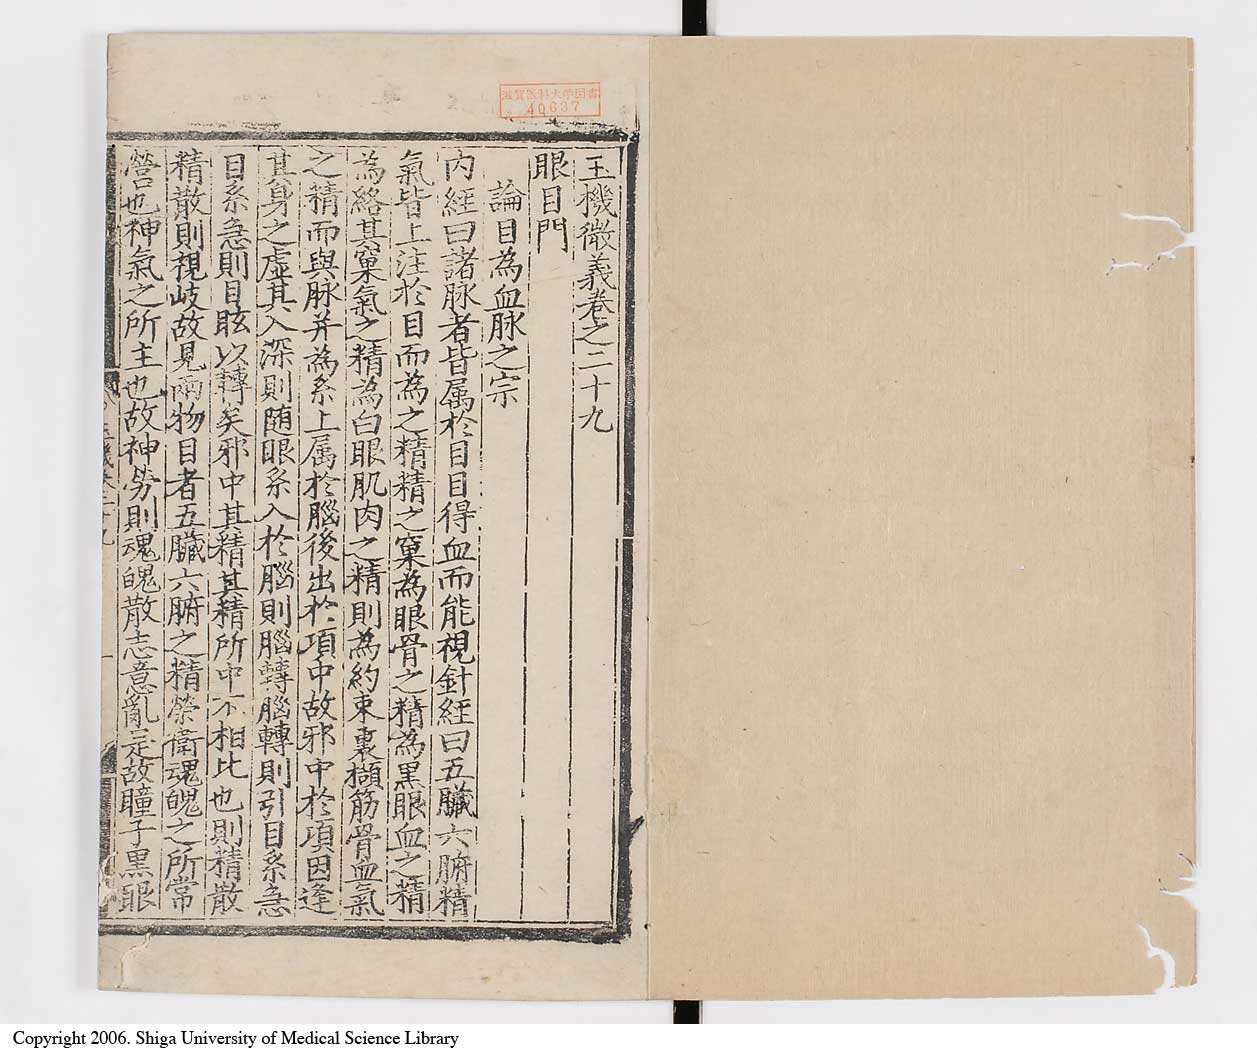 滋賀医科大学図書
40637
玉機微義卷之二十九
眼目門
論目為血脉之宗
内經曰諸脉者皆属於目目得血而能視針經曰五臟六腑精
氣皆上注於目而為之精精之窠為眼骨之精為黒眼血之精
為絡其窠氣之精為白眼肌肉之精則為約束裹擷筋骨血氣
之精而與脉并為系上属於腦後出於項中故邪中於項因逢
其身之虚其入深則随眼系入於腦則腦轉腦轉則引目系急
目系急則目眩以轉矣邪中其精其精所中不相比也則精散
精散則視岐故見兩物目者五臟六腑之精榮衛魂魄之所常
營也神氣之所主也故神勞則魂魄散志意亂是故瞳子黒眼
Copyright 2006. Shiga University of Medical Science Library